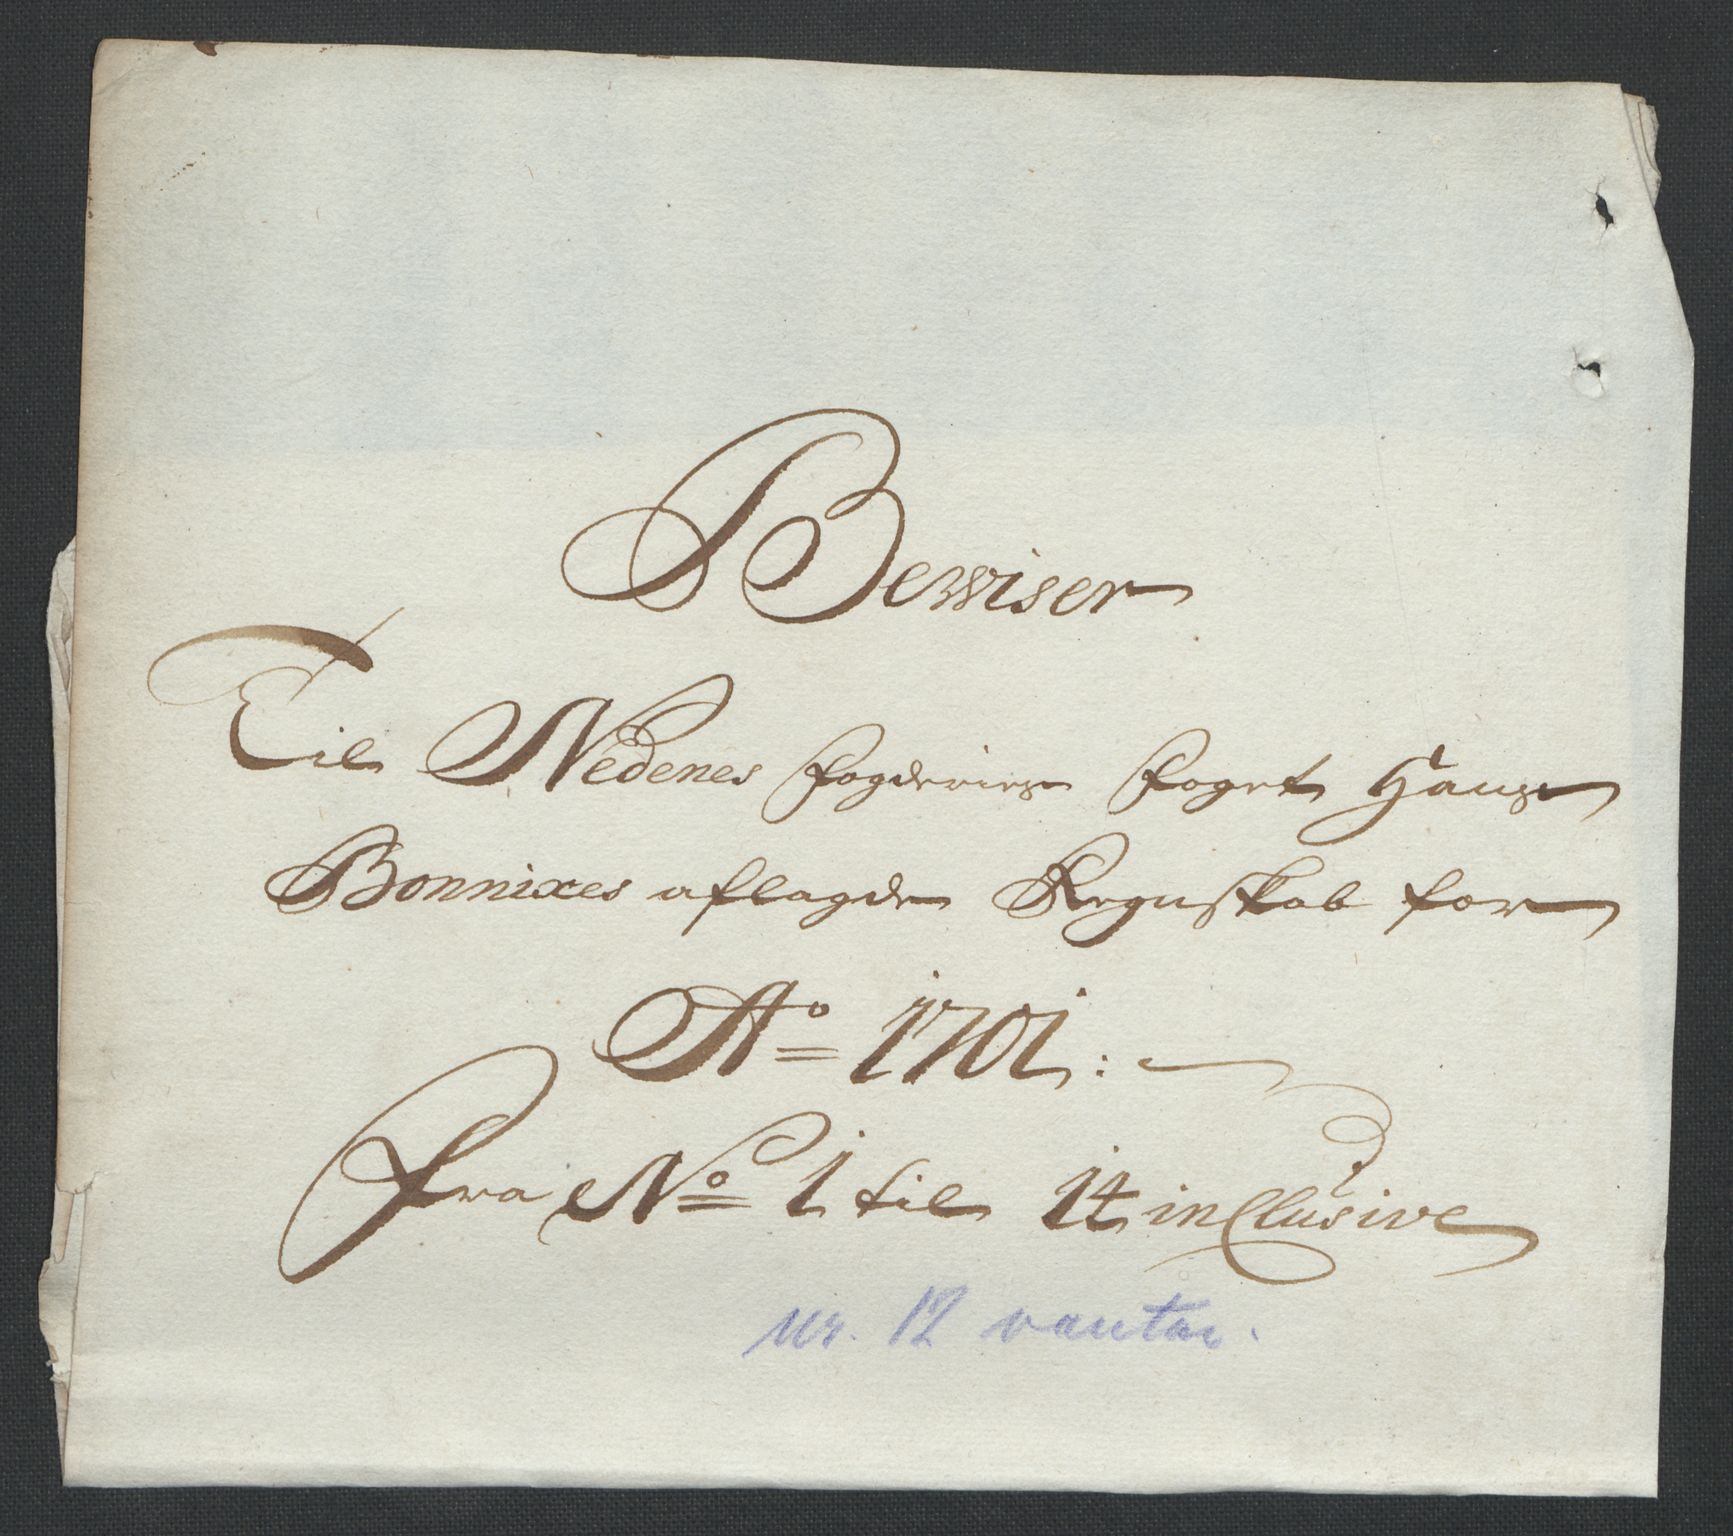 Bewiser
Til Nedenes fogderies foget Hans
Bonnixes aflagde Regnskab for
Ao 1701:
fra No 1 til 14 inclusive
nr. 12 vantar.